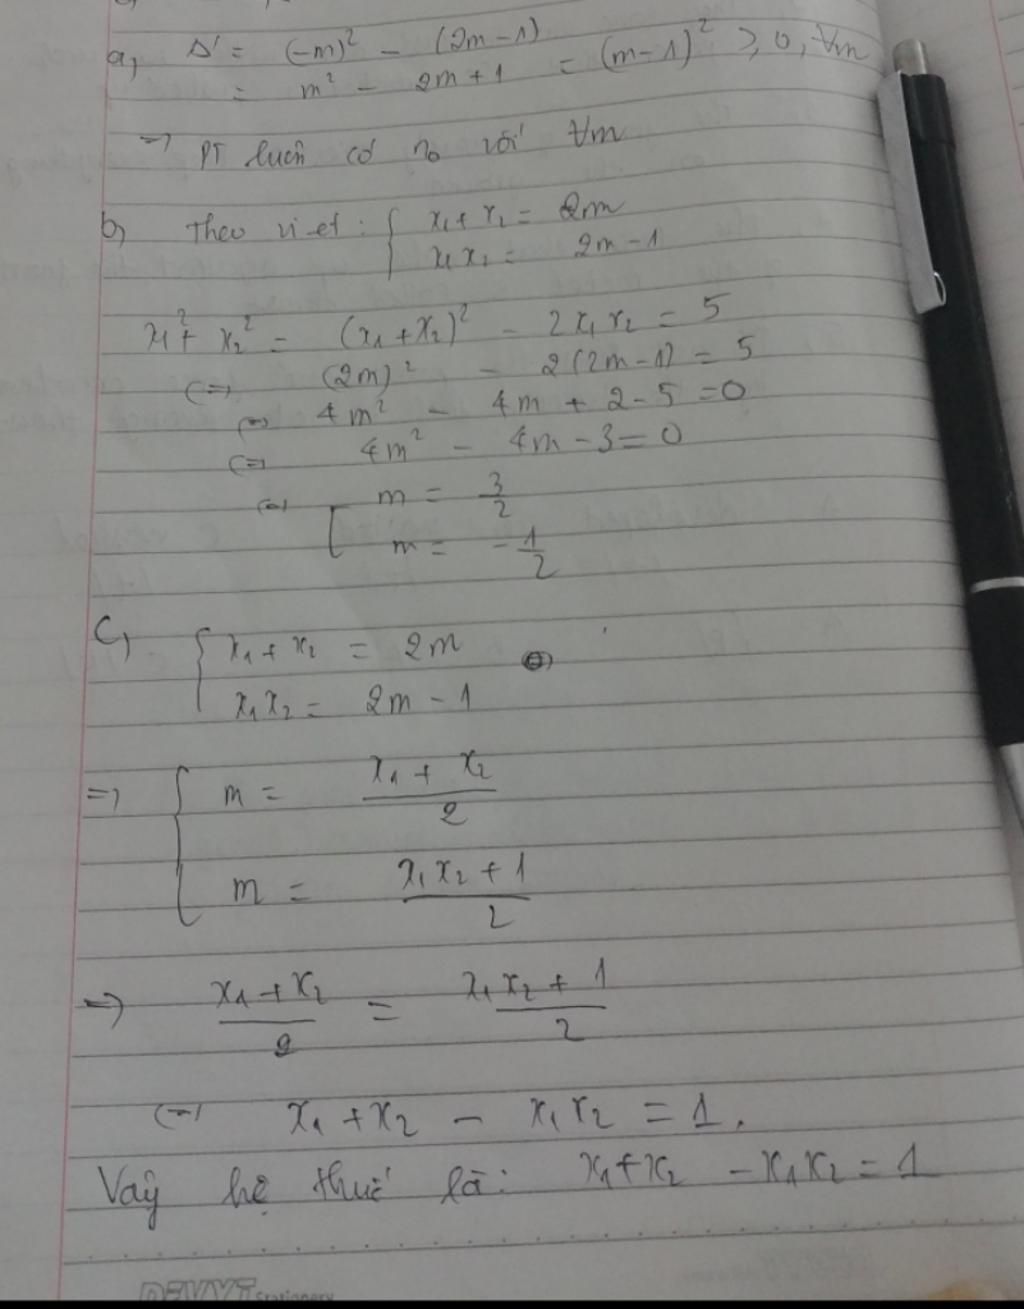 a, Δ' = (-m)² - (2m-1)
= m² - 2m+1 = (m-1)² ≥ 0, ∀m
=> PT luôn có no với ∀m
b, Theo vi-et: { x₁+x₂ = 2m
x₁x₂ = 2m-1
x₁² + x₂² = (x₁+x₂)² - 2x₁x₂ = 5
<=> (2m)² - 2(2m-1) = 5
<=> 4m² - 4m + 2-5 = 0
<=> 4m² - 4m - 3 = 0
<=> [ m = 3/2
m = -1/2
c, { x₁+x₂ = 2m
x₁x₂ = 2m-1
=> { m = (x₁+x₂)/2
m = (x₁x₂+1)/2
=> (x₁+x₂)/2 = (x₁x₂+1)/2
<=> x₁+x₂ - x₁x₂ = 1.
Vậy hệ thức là: x₁+x₂ - x₁x₂ = 1
Stationery